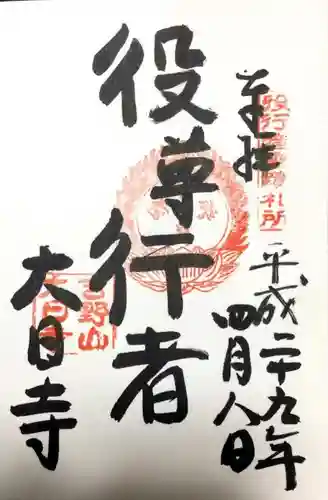 奉拝
役行者霊蹟札所
平成二十九年
四月八日
役尊行者
吉野山
大日寺
大日寺